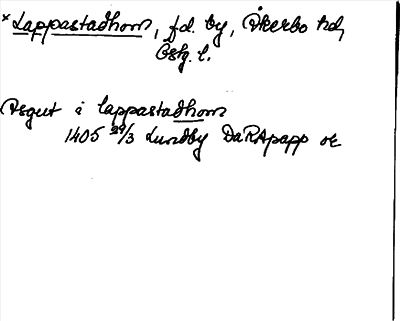 * Lappastadhom, fd. by, Åkerbo hd,
Östg. l.
Asgut i lappastadhom
1405 29/3 Lundby DaRApapp or